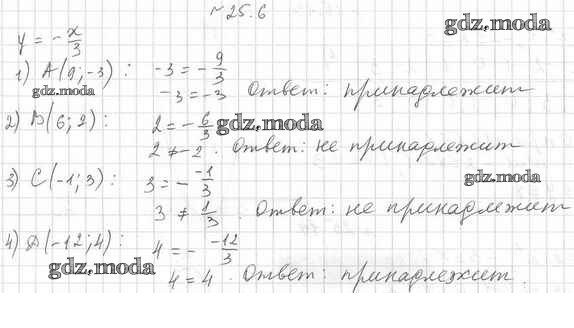 №25.6
gdz.moda
y = -x/3
1) A(9;-3): -3 = -9/3
gdz.moda
-3 = -3 Ответ: принадлежит
2) B(6;2): 2 = -6/3 gdz.moda
2 ≠ -2. Ответ: не принадлежит
3) C(-1;3): 3 = - -1/3 gdz.moda
3 ≠ 1/3. Ответ: не принадлежит
4) D(-12;4): 4 = - -12/3
gdz.moda
4 = 4. Ответ: принадлежит.